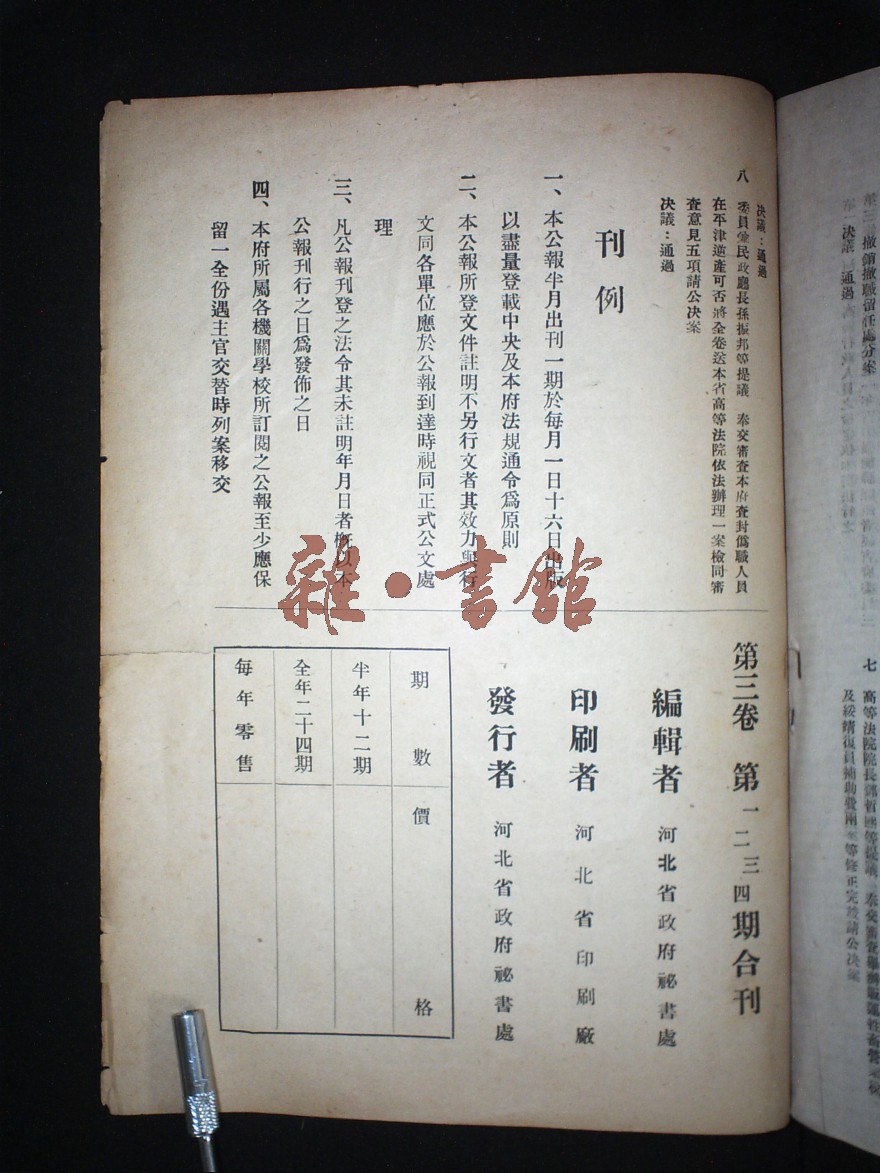 七 高等法院院長鄧哲熙等提議
及綏靖復員補助費
等修正完竣請公決案
撤銷撤職留任處分案
決議 通過
決議：通過
八 委員兼民政廳長孫振邦等提議 奉交審查本府查封僞職人員
在平津逆產可否將全卷送本省高等法院依法辦理一案檢同審
查意見五項請公決案
決議：通過
刊例
一、本公報半月出刊一期於每月一日十六日出版
以盡量登載中央及本府法規通令爲原則
二、本公報所登文件註明不另行文者其效力與行
文同各單位應於公報到達時視同正式公文處
理
三、凡公報刊登之法令其未註明年月日者概以本
公報刊行之日爲發佈之日
四、本府所屬各機關學校所訂閱之公報至少應保
留一全份遇主官交替時列案移交
第三卷 第一二三四期合刊
編輯者 河北省政府祕書處
印刷者 河北省印刷廠
發行者 河北省政府祕書處
期數 價格
半年十二期
全年二十四期
每年零售
雜·書館